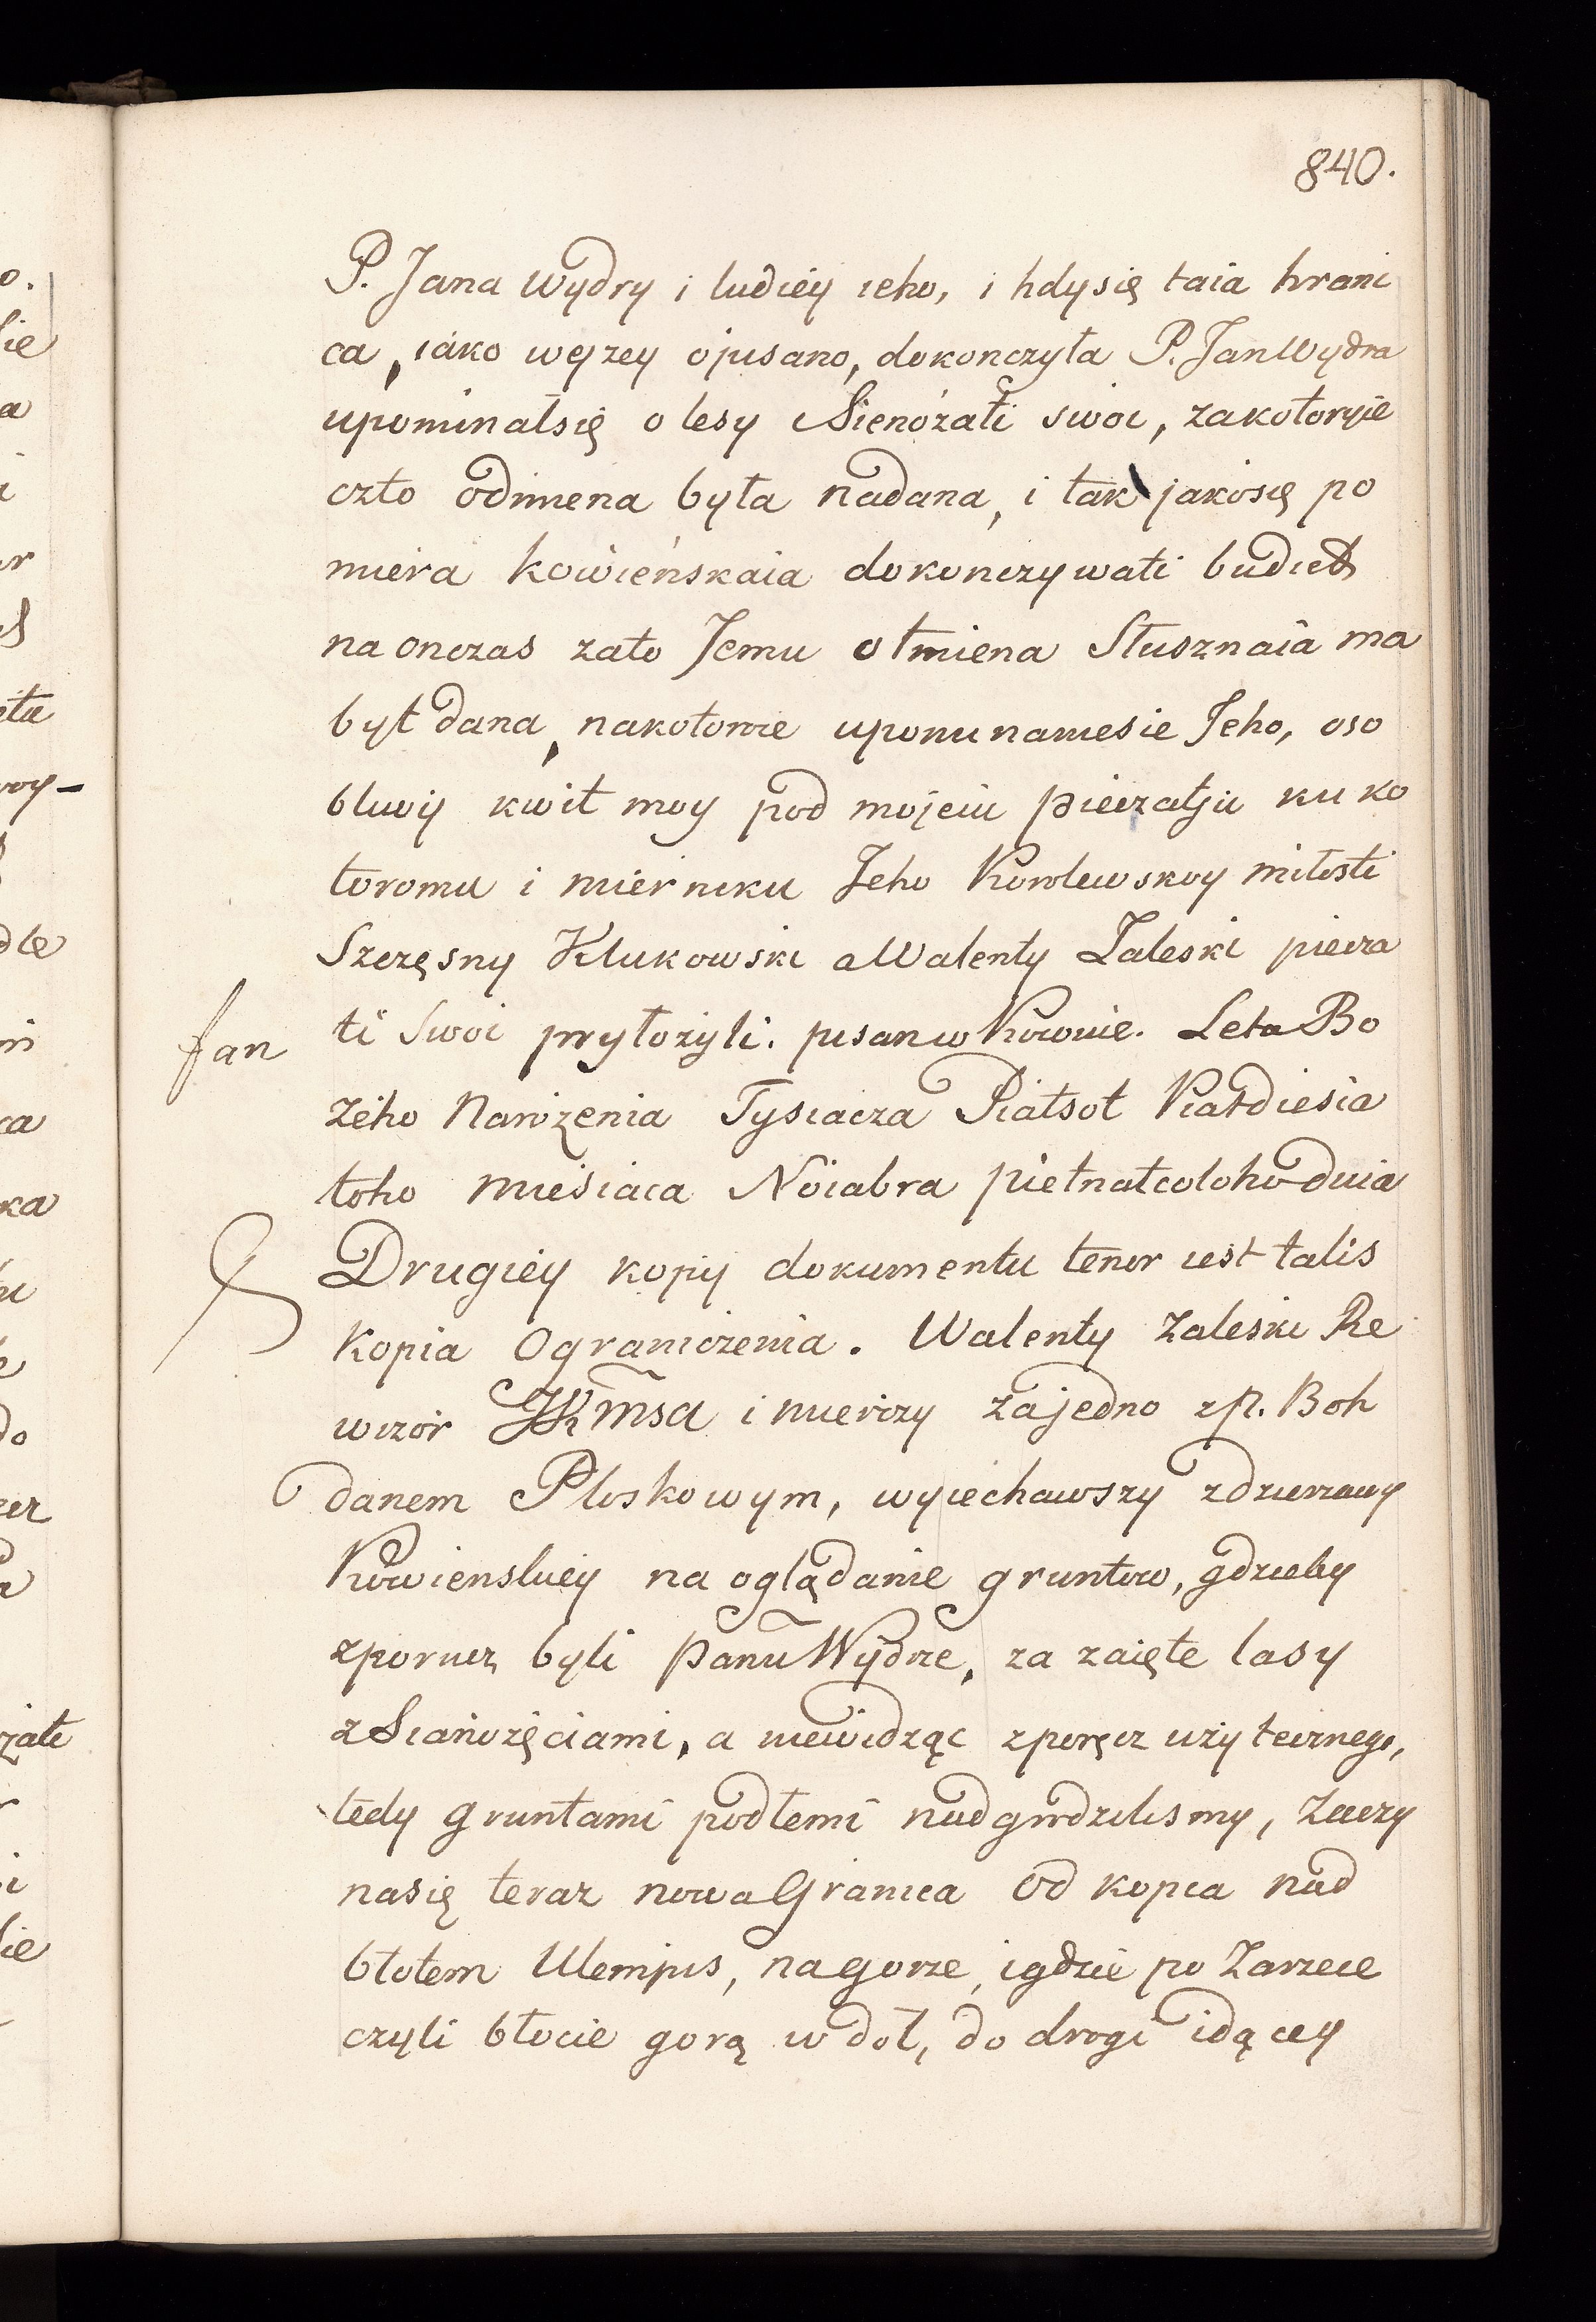 840.
P. Jana Wydry i ludiey ieho, i hdysię taia hrani
ca, iako wyzey opisano, dokonczyła P. Jan Wydra
upominałsię o lesy Sienożati swoi, zakotoryie
czto odmena była nadana, i tak jakosię po
miera kowieńskaia dokonczywati budiet
na onczas zato Jemu otmiena Słusznaia ma
byt dana, nakotoroie upominaniesie Jeho, oso
bliwy kwit moy pod mojeiu pieczatju ku ko
toromu i mierniku Jeho Korolewskoy miłosti
Szczęsny Klukowski a Walenty Zaleski piecza
fan ti Swoi pryłożyli. pisan w Kownie. Leta Bo
żeho Narożenia Tysiacza Piatsot Piatdiesia
toho miesiaca Noiabra pietnatcotoho dnia
Drugiey kopij dokumentu tenor iest talis
Kopia Ograniczenia. Walenty Zaleski Re
wizór JKmsa i mierczy zajedno z p. Boh
danem Ploskowym, wyiechawszy zdzierżawy
Kowienskiey na oglądanie gruntow, gdzieby
zporucz byli Panu Wydrze, za zaięte lasy
z Sianożęciami, a niewidząc zporęcz użytecznego,
tedy gruntami podłemi nadgrodzilismy, Zaczy
nasię teraz nowa Granica od kopca nad
błotem Ulempis, na gorze, i gdzie po Zarzece
czyli błocie gorą w doł, do drogi idącey